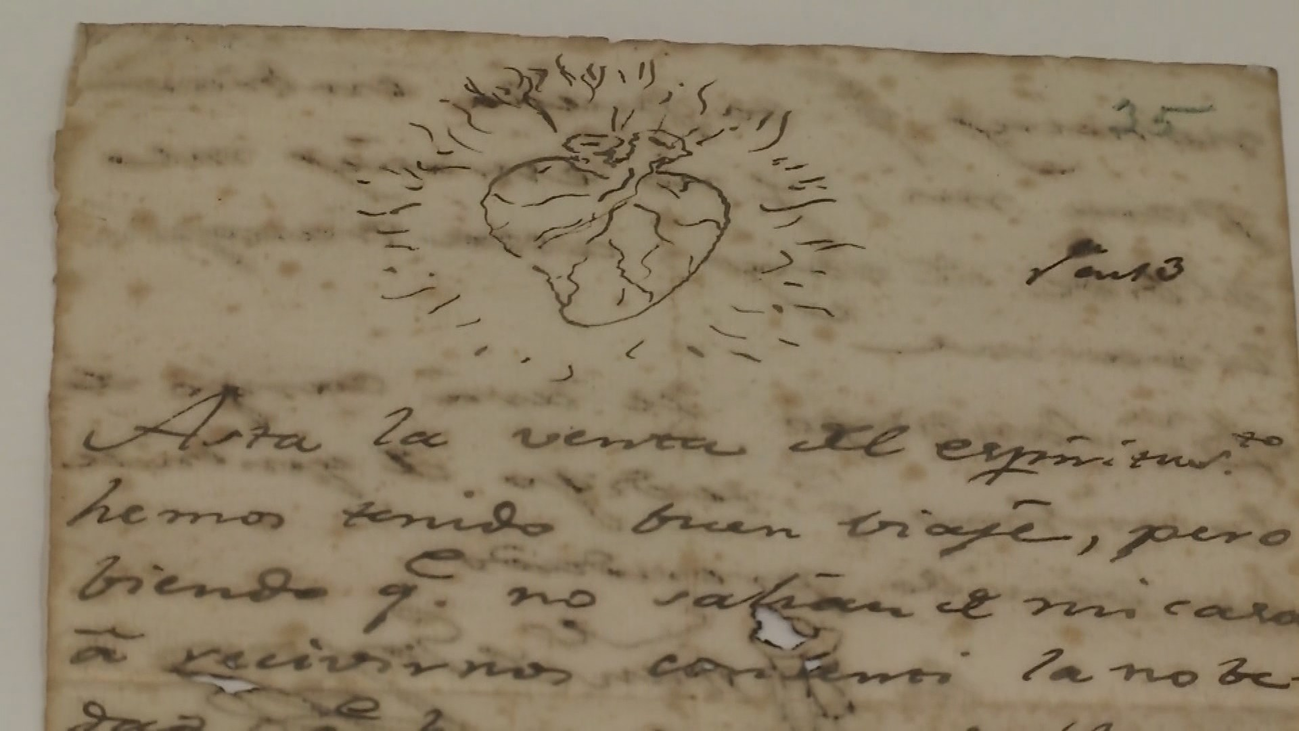 25
Asta la venta del espiritus.to
hemos tenido buen viaje, pero
biendo q.e no salian de mi casa
â recivirnos la nobe-
dad